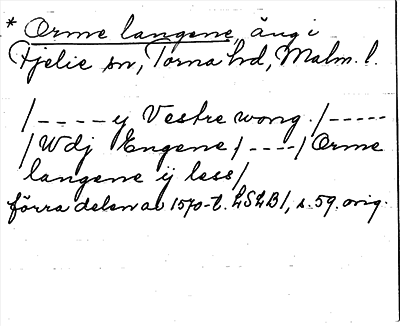 * Orme langene, äng i
Fjelie sn, Torna hd, Malm. l.
/ - - - - y Vestre wong. / - - - - -
/ Wdj Engene / - - - - / Orme
langene ij less /
förra delen av 1570-t. LSLB 1, s. 59. orig.